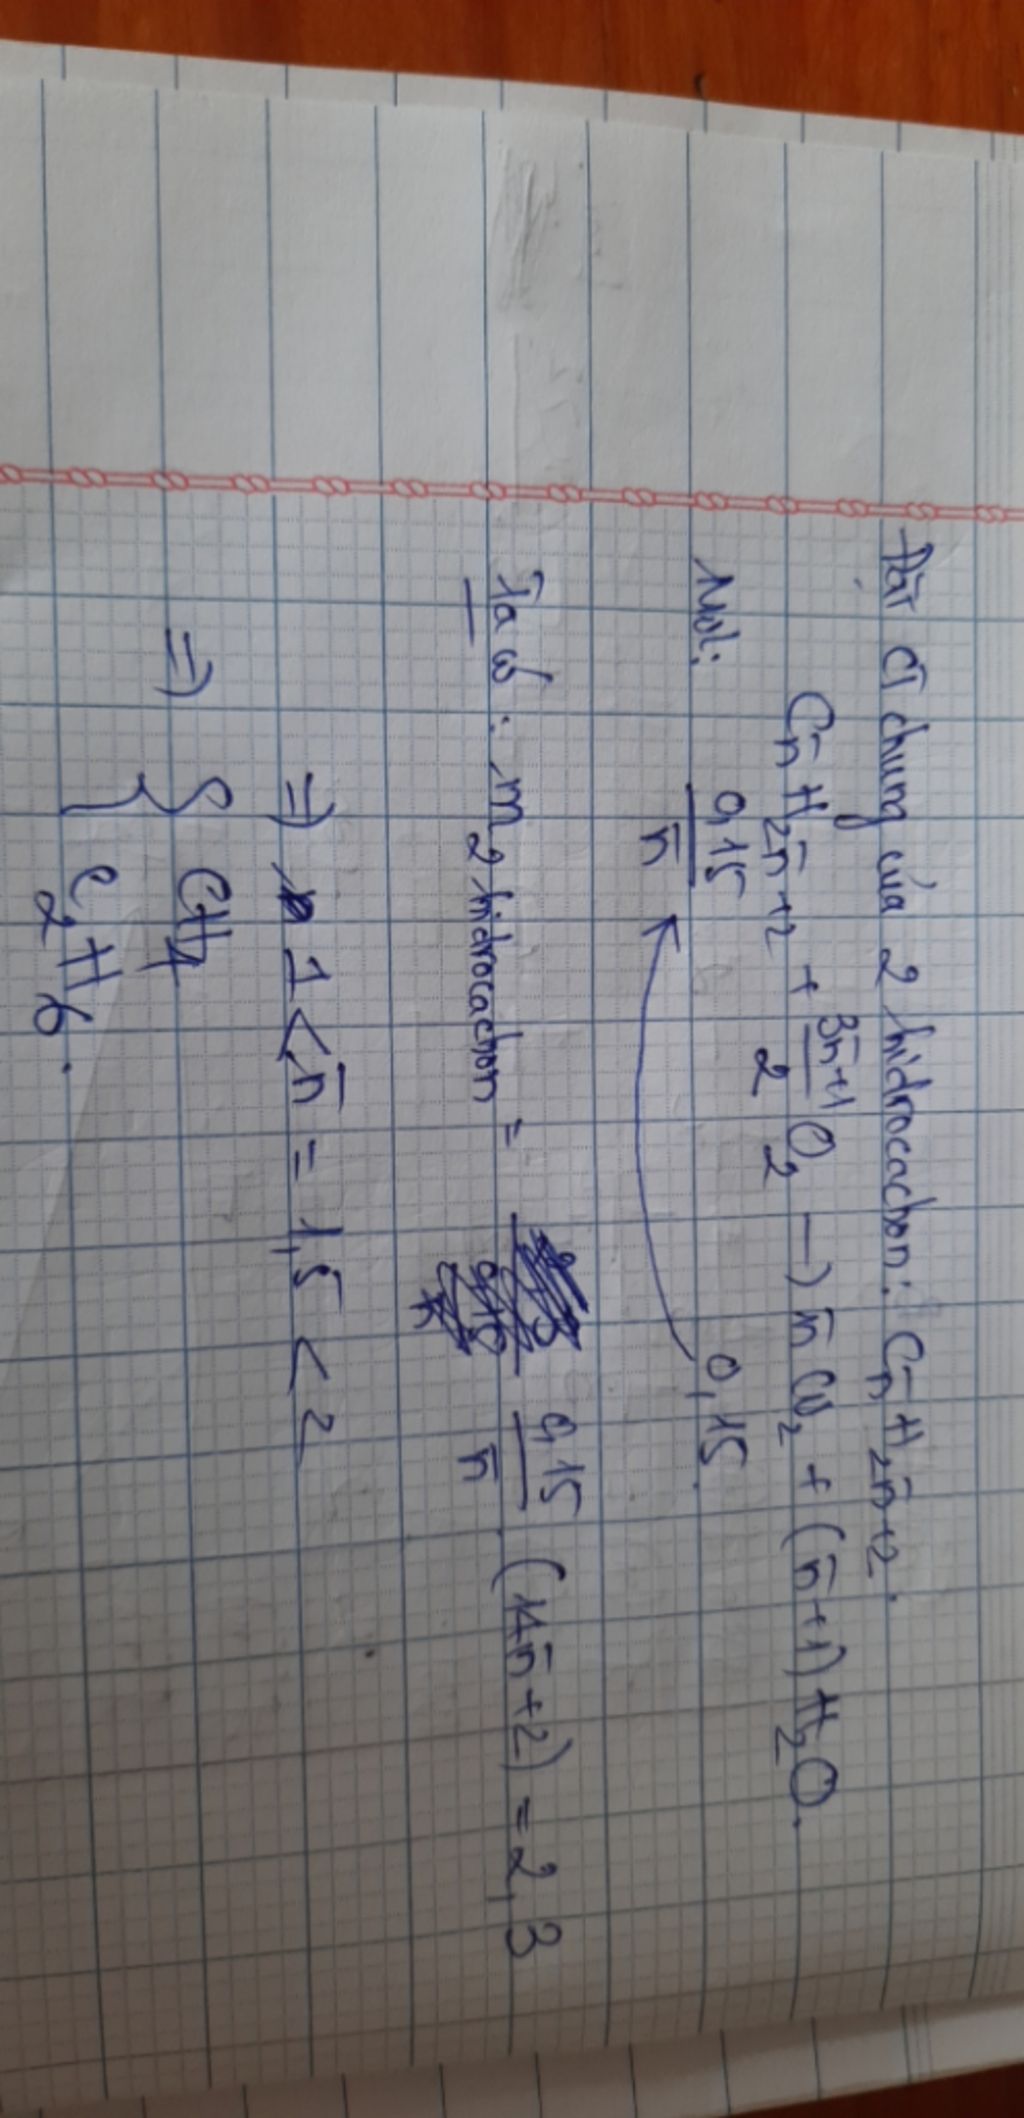 Đặt CT chung của 2 hidrocacbon: Cn̄H2n̄+2.
Cn̄H2n̄+2 + 3n̄+1/2 O2 → n̄ CO2 + (n̄+1) H2O.
Mol: 0,15/n̄ 0,15
Ta có: m2 hidrocacbon = 0,15/n̄ (14n̄+2) = 2,3
=> 1 < n̄ = 1,5 < 2
=> { CH4
C2H6.